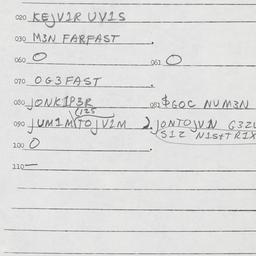 020 KEJV1R UV1S
030 M3N FARFAST.
060 O 061 O
070 OG3FAST.
080 JONK1P3R 081 $GOC NUM3N
(125
090 JUM1M TO JV1M 2. JONTOJVN G3ZU
S1Z N1STTR1X
100 O.
110 —